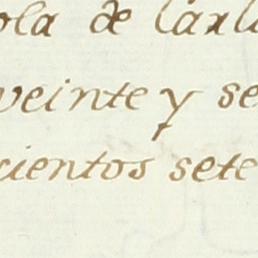 ola de Carl
veinte y se
cientos sete